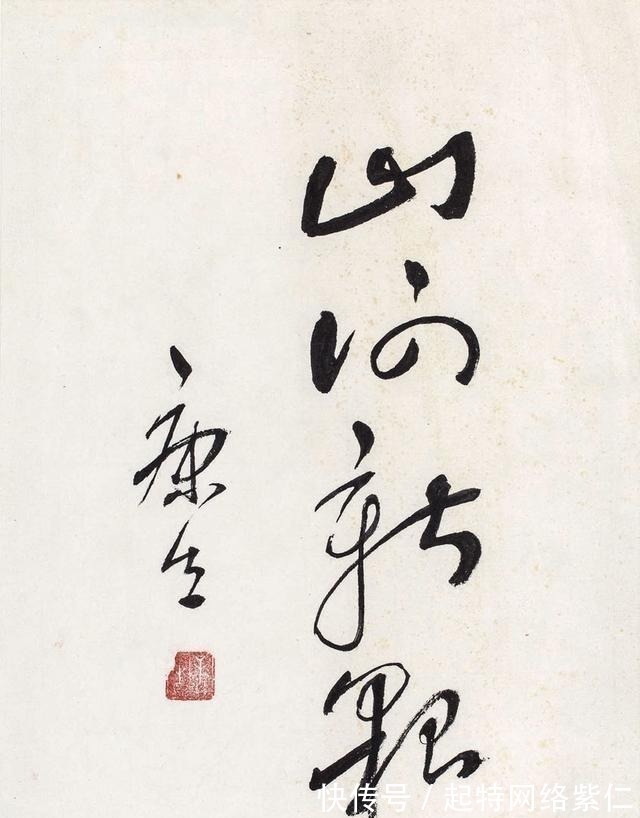 山河新
康生
快传号 / 起特网络紫仁